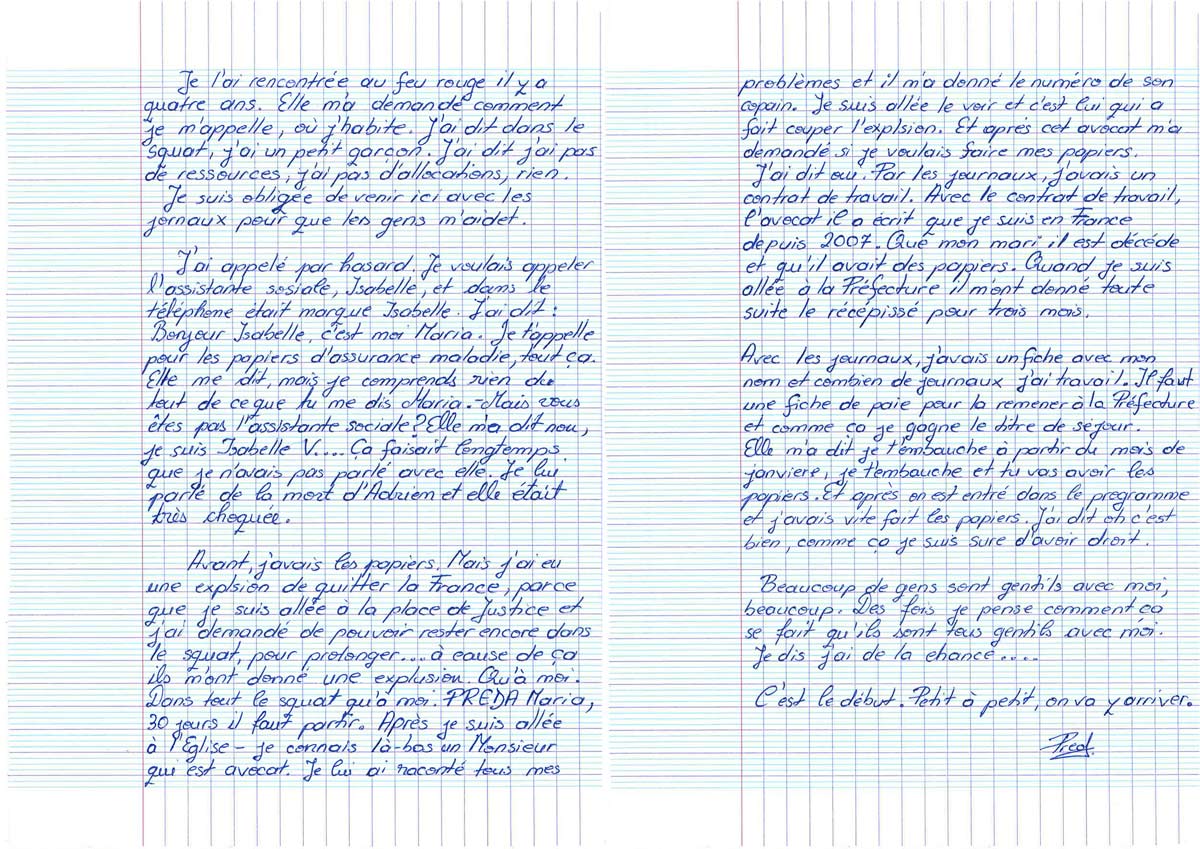 Je l'ai rencontrée au feu rouge il y a
quatre ans. Elle m'a demandé comment
je m'appelle, où j'habite. J'ai dit dans le
squat, j'ai un petit garçon. J'ai dit j'ai pas
de ressources, j'ai pas d'allocations, rien.
Je suis obligée de venir ici avec les
jornaux pour que les gens m'aidet.
J'ai appelé par hasard. Je voulais appeler
l'assistante sosiale, Isabelle, et dans le
téléphone était marque Isabelle. J'ai dit :
Bonjour Isabelle, c'est moi Maria. Je t'appelle
pour les papiers d'assurance maladie, tout ça.
Elle me dit, mais je comprends rien du
tout de ce que tu me dis Maria. - Mais vous
êtes pas l'assistante sociale ? Elle m'a dit non,
je suis Isabelle V.... Ça faisait longtemps
que je n'avais pas parlé avec elle. Je lui
parlé de la mort d'Adriem et elle était
très choquée.
Avant, j'avais les papiers. Mais j'ai eu
une explsion de quitter la France, parce
que je suis allée à la place de Justice et
j'ai demandé de pouvoir rester encore dans
le squat, pour prolonger.... à cause de ça
ils m'ont donné une explusion. Qu'à moi.
Dans tout le squat qu'à moi. PREDA Maria,
30 jours il faut partir. Après je suis allée
à l'Eglise - je connais là-bas un Monsieur
qui est avocat. Je lui ai raconté tous mes
problèmes et il m'a donné le numéro de son
copain. Je suis allée le voir et c'est lui qui a
fait couper l'explsion. Et après cet avocat m'a
demandé si je voulais faire mes papiers.
J'ai dit oui. Par les journaux, j'avais un
contrat de travail. Avec le contrat de travail,
l'avocat il a écrit que je suis en France
depuis 2007. Que mon mari il est décéde
et qu'il avait des papiers. Quand je suis
allée à la Préfecture il m'ont donné toute
suite le récépissé pour trois mois.
Avec les journaux, j'avais un fiche avec mon
nom et combien de journaux j'ai travail. Il faut
une fiche de paie pour la remener à la Préfecture
et comme ça je gagne le titre de séjour.
Elle m'a dit je t'embauche à partir du mois de
janviere, je t'embauche et tu vas avoir les
papiers. Et après on est entré dans le programme
et j'avais vite fait les papiers. J'ai dit oh c'est
bien, comme ça je suis sure d'avoir droit.
Beaucoup de gens sont gentils avec moi,
beaucoup. Des fois je pense comment ça
se fait qu'ils sont tous gentils avec moi.
Je dis j'ai de la chance.....
C'est le début. Petit à petit, on va y arriver.
Pred.